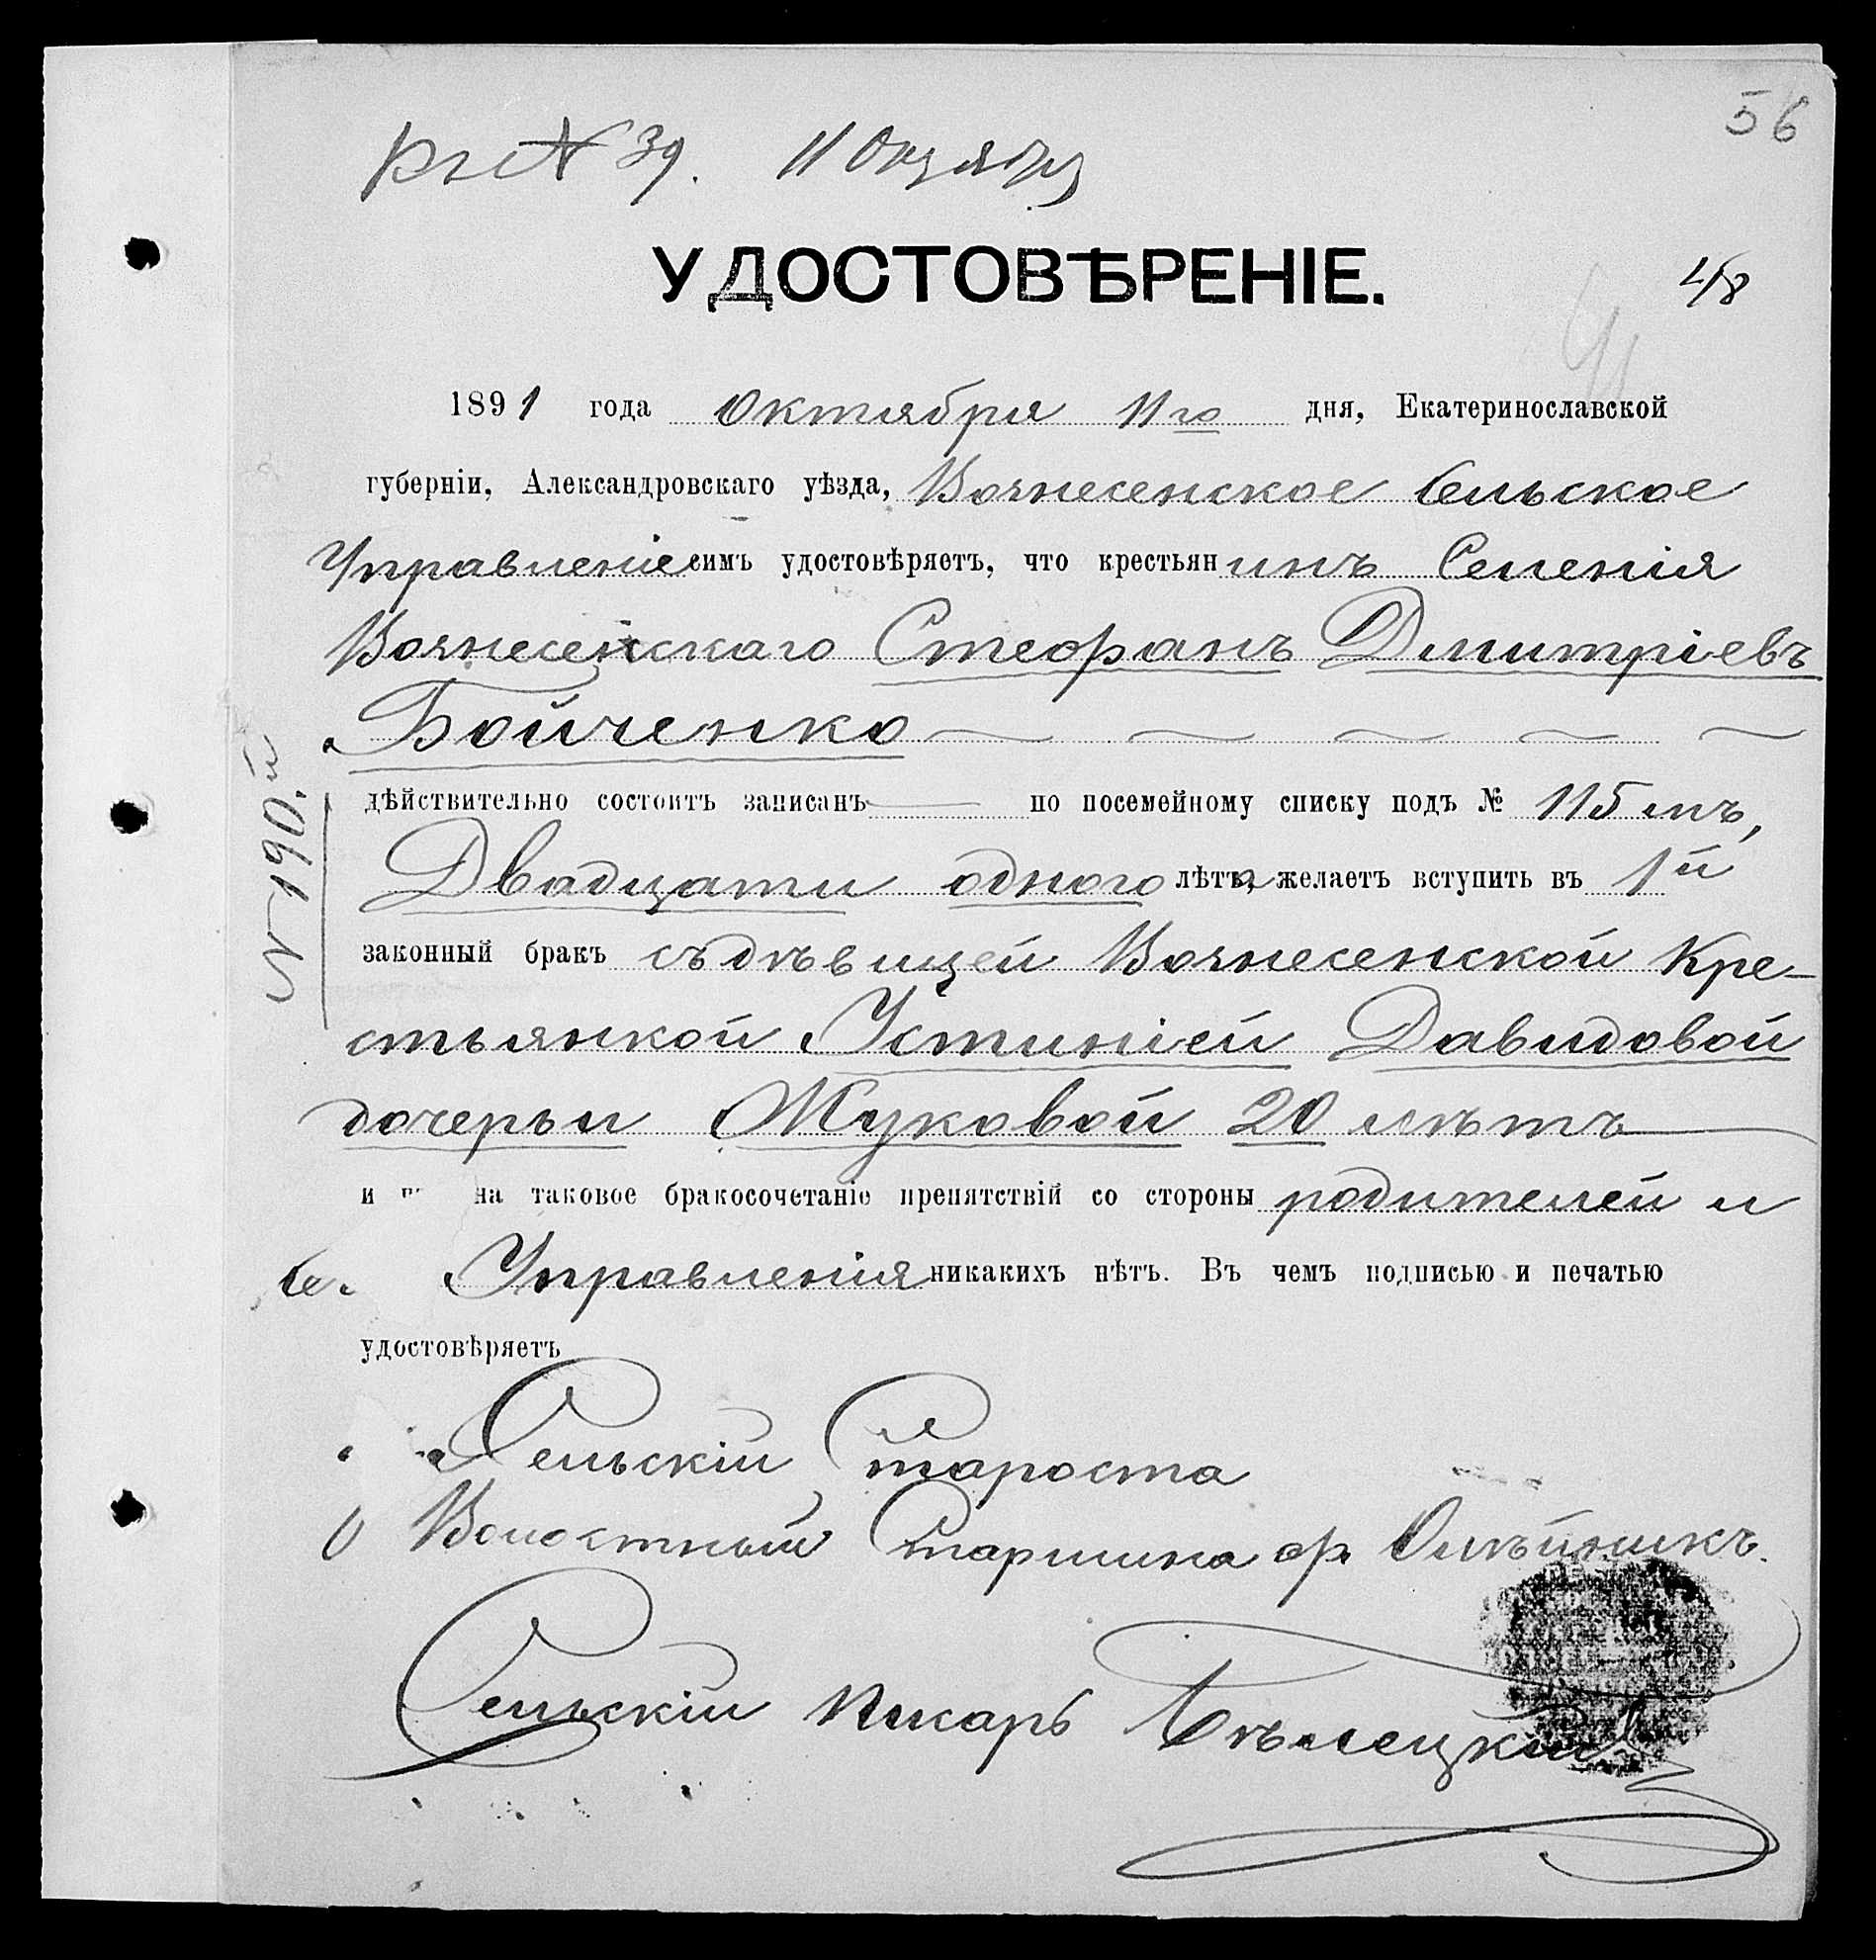 56
№ 39. 11 Октября
УДОСТОВѢРЕНІЕ.
48
1891 года Октября 11го дня, Екатеринославской
губерніи, Александровскаго уѣзда, Вознесенское Сельское
Управленіе симъ удостовѣряетъ, что крестьянинъ Селенія
Вознесенскаго Стефанъ Дмитріевъ
Бойченко
дѣйствительно состоитъ записанъ по посемейному списку подъ № 115 мъ,
Двадцати одного лѣтъ, желаетъ вступить въ 1й
законный бракъ съ дѣвицей Вознесенской Кре-
стьянкой Устиніей Давидовой
дочерью Жуковой 20 лѣтъ
и на таковое бракосочетаніе препятствій со стороны родителей и
Управленія никакихъ нѣтъ. Въ чемъ подписью и печатью
удостовѣряетъ
Сельскій Староста
Волостный Старшина Олѣйникъ.
Сельскій Писарь Бѣлецкій
№ 190.й